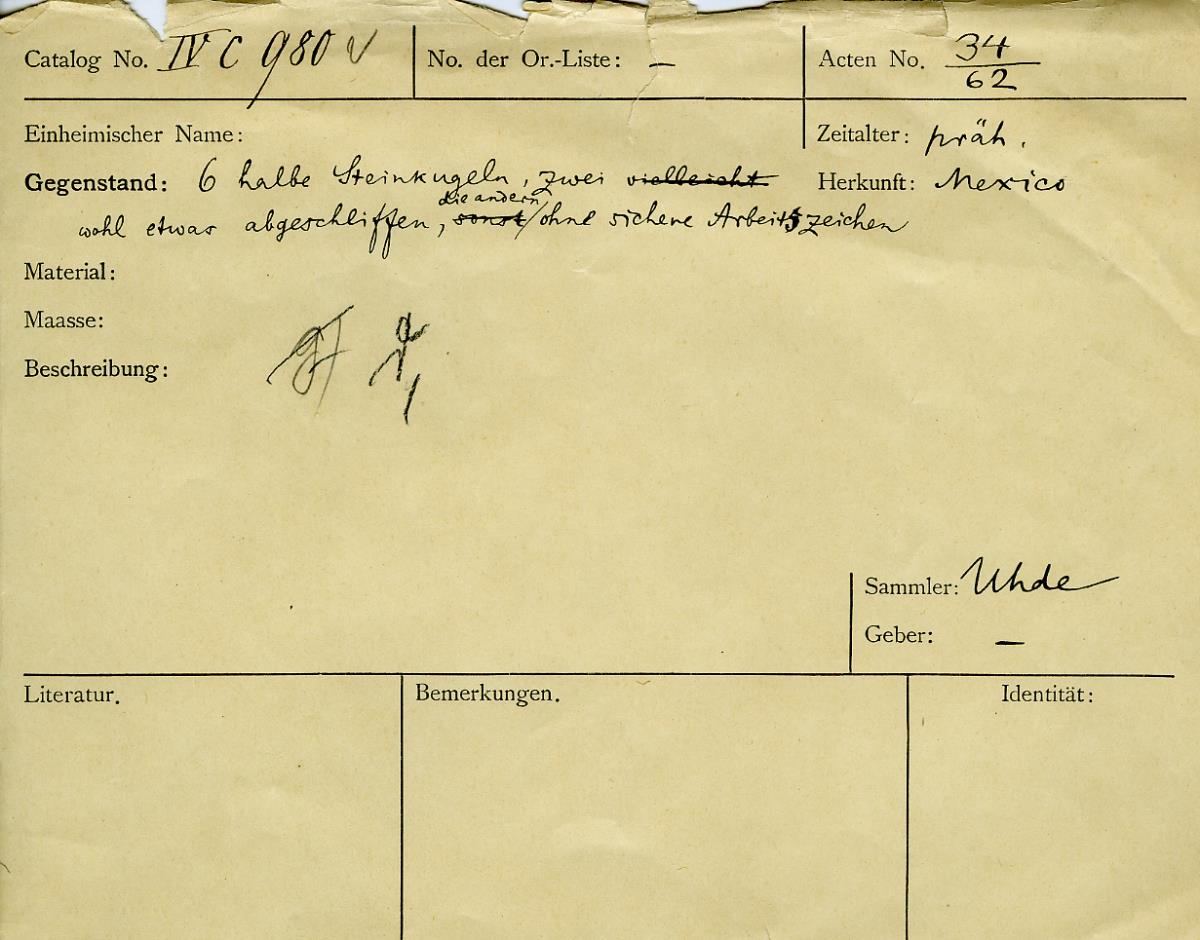 Catalog No. IV C 980 v No. der Or.-Liste: — Acten No. 34/62
Einheimischer Name: Zeitalter: präh.
Gegenstand: 6 halbe Steinkugeln, zwei vielleicht Herkunft: Mexico
die andern
wohl etwas abgeschliffen, sonst / ohne sichere Arbeitszeichen
Material:
Maasse:
Beschreibung:
Sammler: Uhde
Geber: —
Literatur. Bemerkungen. Identität: